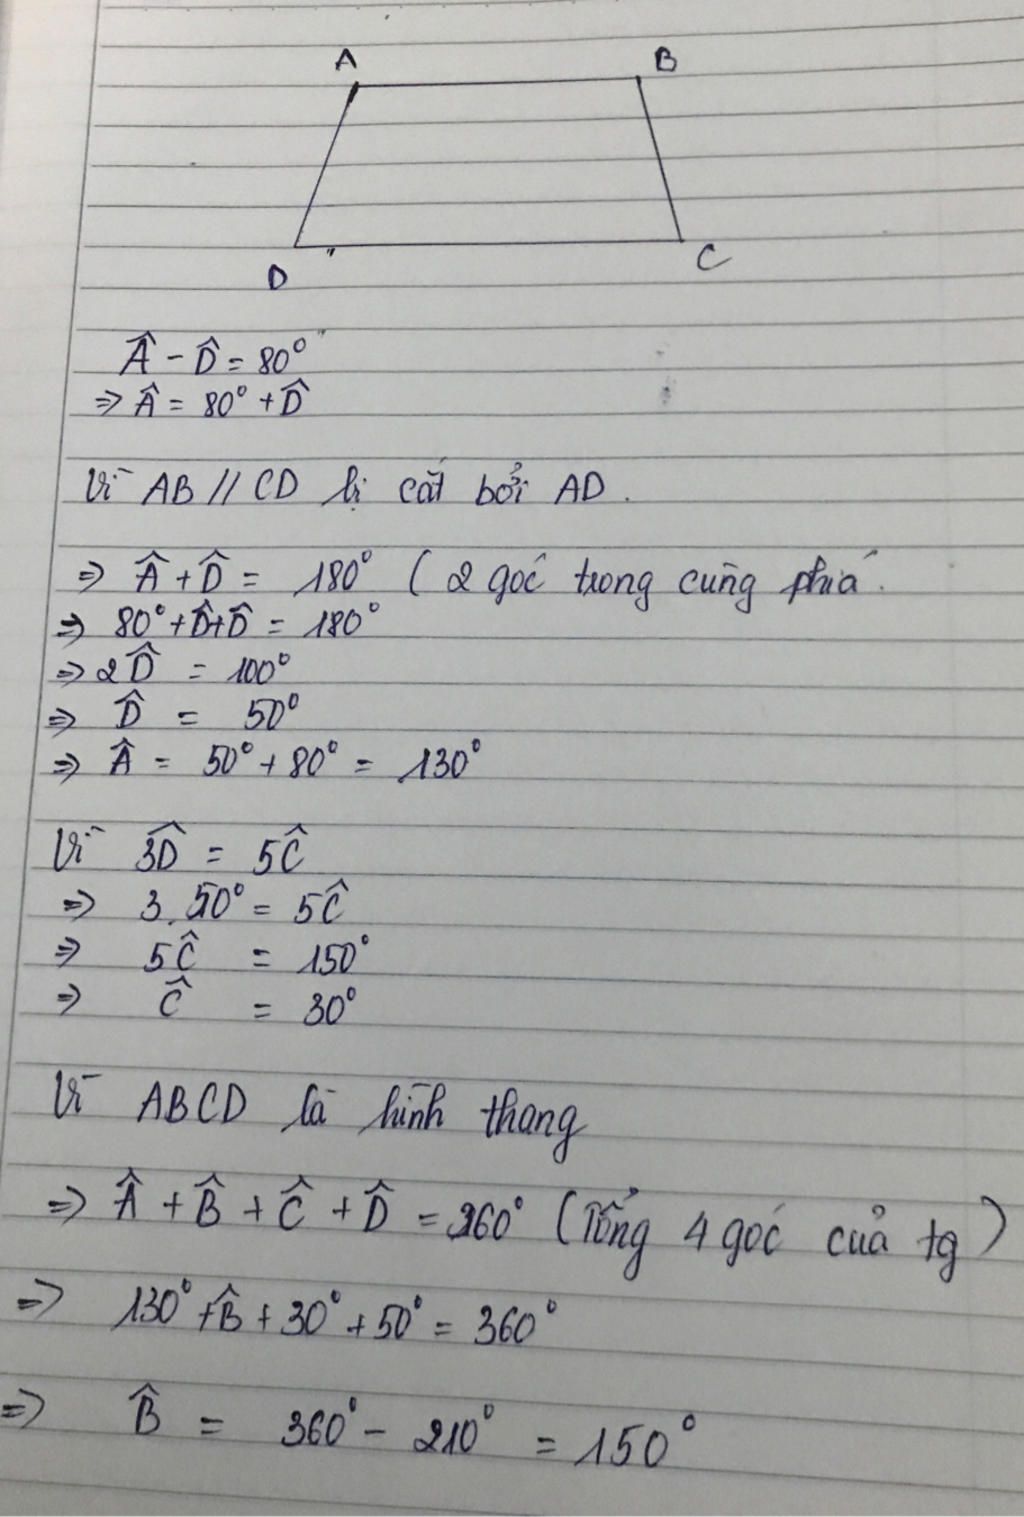 A B
D C
Â - D̂ = 80°
⇒ Â = 80° + D̂
Vì AB // CD bị cắt bởi AD.
⇒ Â + D̂ = 180° (2 góc trong cùng phía.
⇒ 80° + D̂ + D̂ = 180°
⇒ 2D̂ = 100°
⇒ D̂ = 50°
⇒ Â = 50° + 80° = 130°
Vì 3D̂ = 5Ĉ
⇒ 3.50° = 5Ĉ
⇒ 5Ĉ = 150°
⇒ Ĉ = 30°
Vì ABCD là hình thang
⇒ Â + B̂ + Ĉ + D̂ = 360° (Tổng 4 góc của tg)
⇒ 130° + B̂ + 30° + 50° = 360°
⇒ B̂ = 360° - 210° = 150°